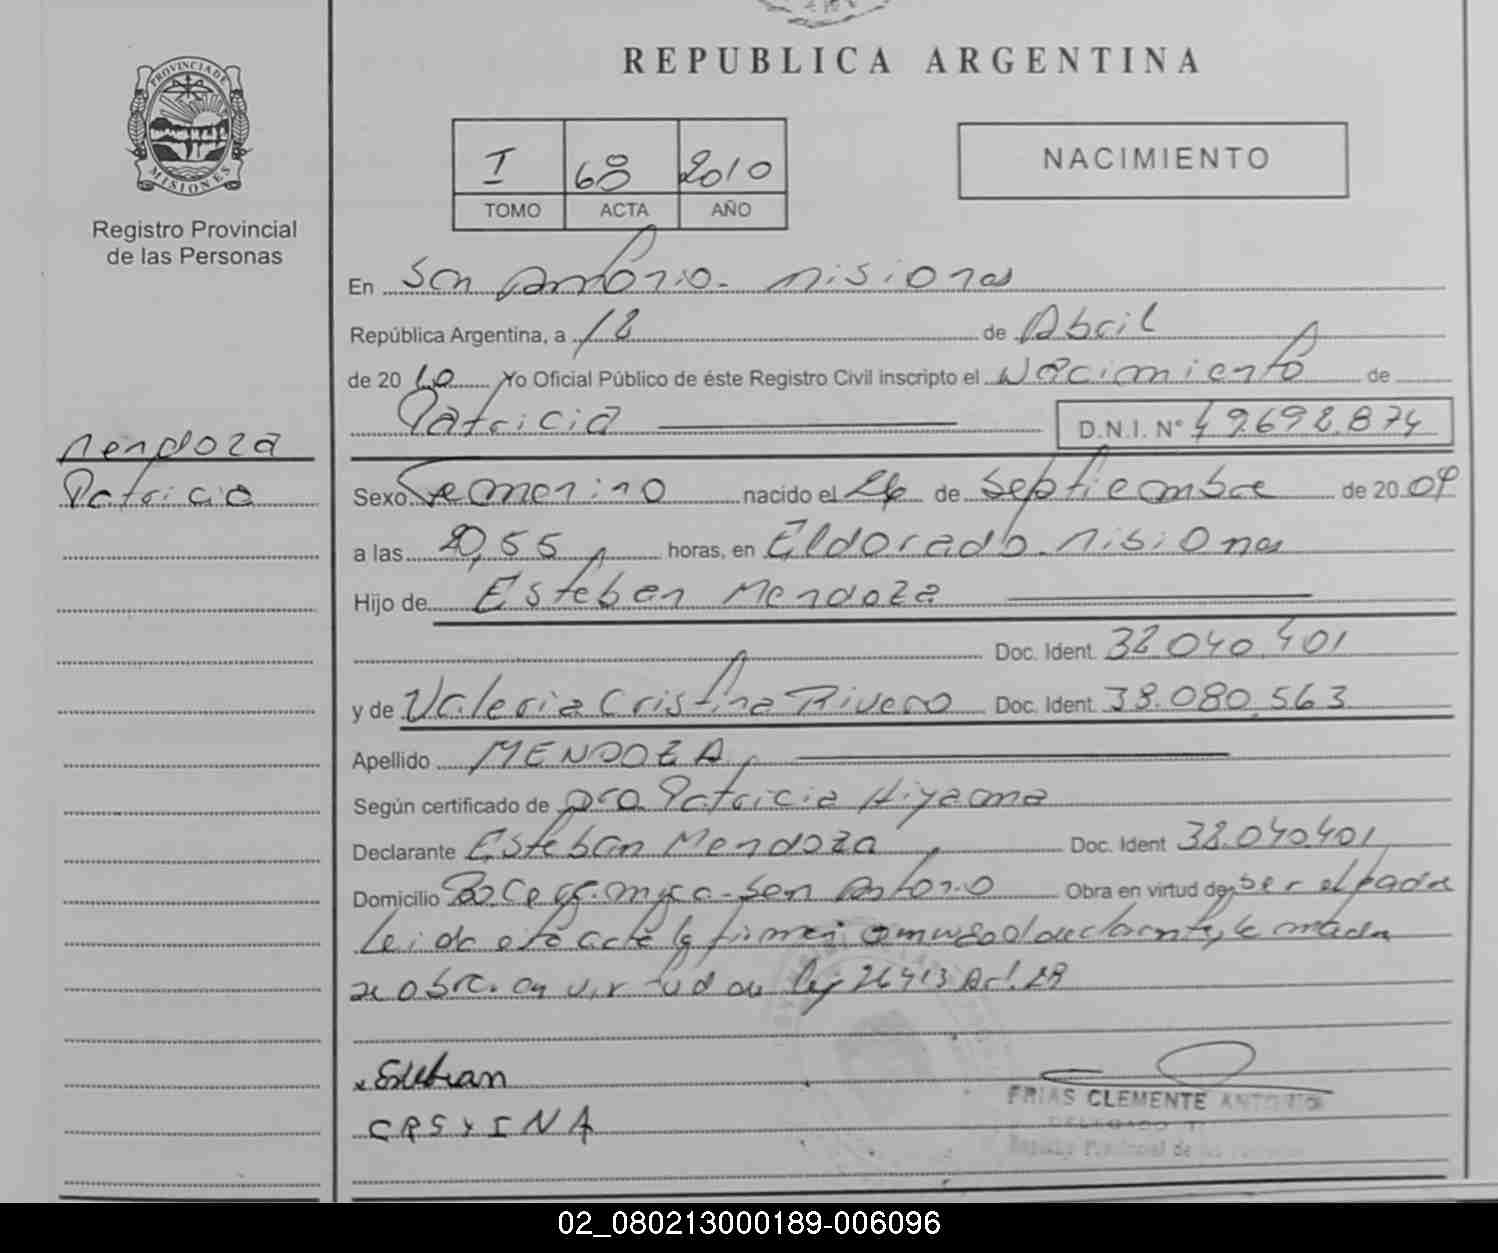 REPUBLICA ARGENTINA
PROVINCIA DE MISIONES
Registro Provincial
de las Personas
I 68 2010
TOMO ACTA AÑO
NACIMIENTO
En San Antonio - Misiones
República Argentina, a 12 de Abril
de 20 10 Yo Oficial Público de éste Registro Civil inscripto el Nacimiento de
Patricia D.N.I. Nº 49.692.874
Mendoza
Patricia
Sexo Femenino nacido el 24 de Septiembre de 20 09
a las 20,55 horas, en Eldorado - Misiones
Hijo de Esteban Mendoza
Doc. Ident. 32.040.401
y de Valeria Cristina Rivero Doc. Ident. 38.080.563
Apellido MENDOZA
Según certificado de Dra Patricia Hiyeoma
Declarante Esteban Mendoza Doc. Ident 32.040.401
Domicilio San Antonio Obra en virtud de ser el padre
Leida este acta la firman el declarante, la madre
se obra en virtud de ley 26413 Art.
x Esteban
CRSYINA
FRIAS CLEMENTE ANTONIO
DELEGADO
Registro Provincial de las Personas
02_080213000189-006096